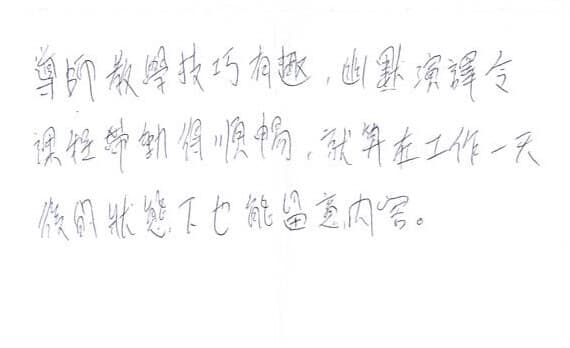 導師教學技巧有趣，幽默演譯令
課程帶動得順暢，就算在工作一天
後的狀態下也能留意內容。